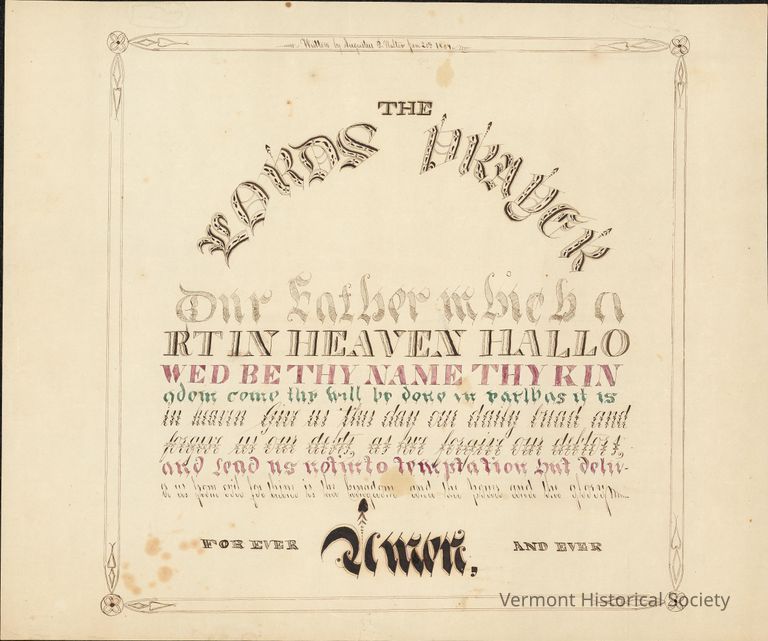 Written by Augustus
THE
LORDS PRAYER
Our Father which a
RT IN HEAVEN HALLO
WED BE THY NAME THY KIN
gdom come thy will be done in earth as it is
in heavn Give us this day our daily bread and
forgive us our debts, as we forgive our debtors,
and lead us not into temptation but deliv-
er us from evil for thine is the kingdom and the power and the glory
FOR EVER Amen. AND EVER
Vermont Historical Society